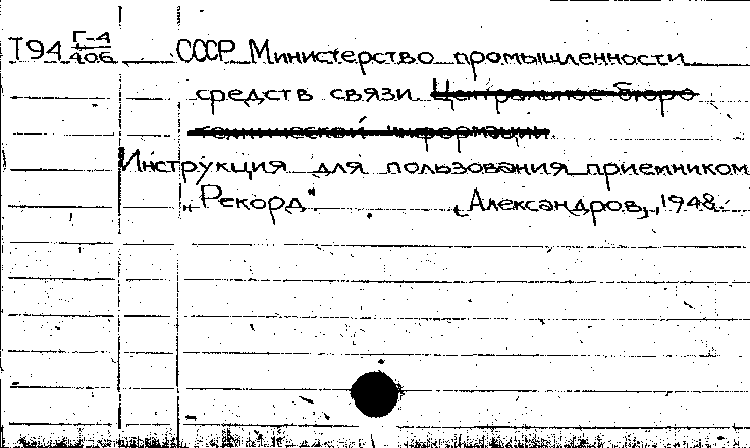 Т94 Г-4/406 СССР Министерство промышленности
средств связи Центральное бюро
технической информации
Инструкция для пользования приемником
„Рекорд" [Александров], 1948.